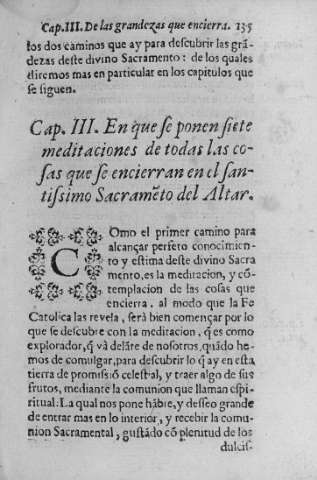 Cap.III. De las grandezas que encierra. 135
los dos caminos que ay para descubrir las grā-
dezas deste divino Sacramento: de los quales
diremos mas en particular en los capitulos que
se siguen.
Cap. III. En que se ponen siete
meditaciones de todas las co-
sas que se encierran en el san-
tissimo Sacramēto del Altar.
COmo el primer camino para
alcançar perfeto conocimien-
to y estima deste divino Sacra
mento, es la meditacion, y cō-
templacion de las cosas que
encierra, al modo que la Fe
Catolica las revela, serà bien começar por lo
que se descubre con la meditacion, q̃ es como
explorador, q̃ và delāte de nosotros, quādo he-
mos de comulgar, para descubrir lo q̃ ay en esta
tierra de promissiō celestial, y traer algo de sus
frutos, mediante la comunion que llaman espi-
ritual: La qual nos pone hābre, y desseo grande
de entrar mas en lo interior, y recebir la comu-
nion Sacramental, gustādo cō plenitud de los
dulcis-